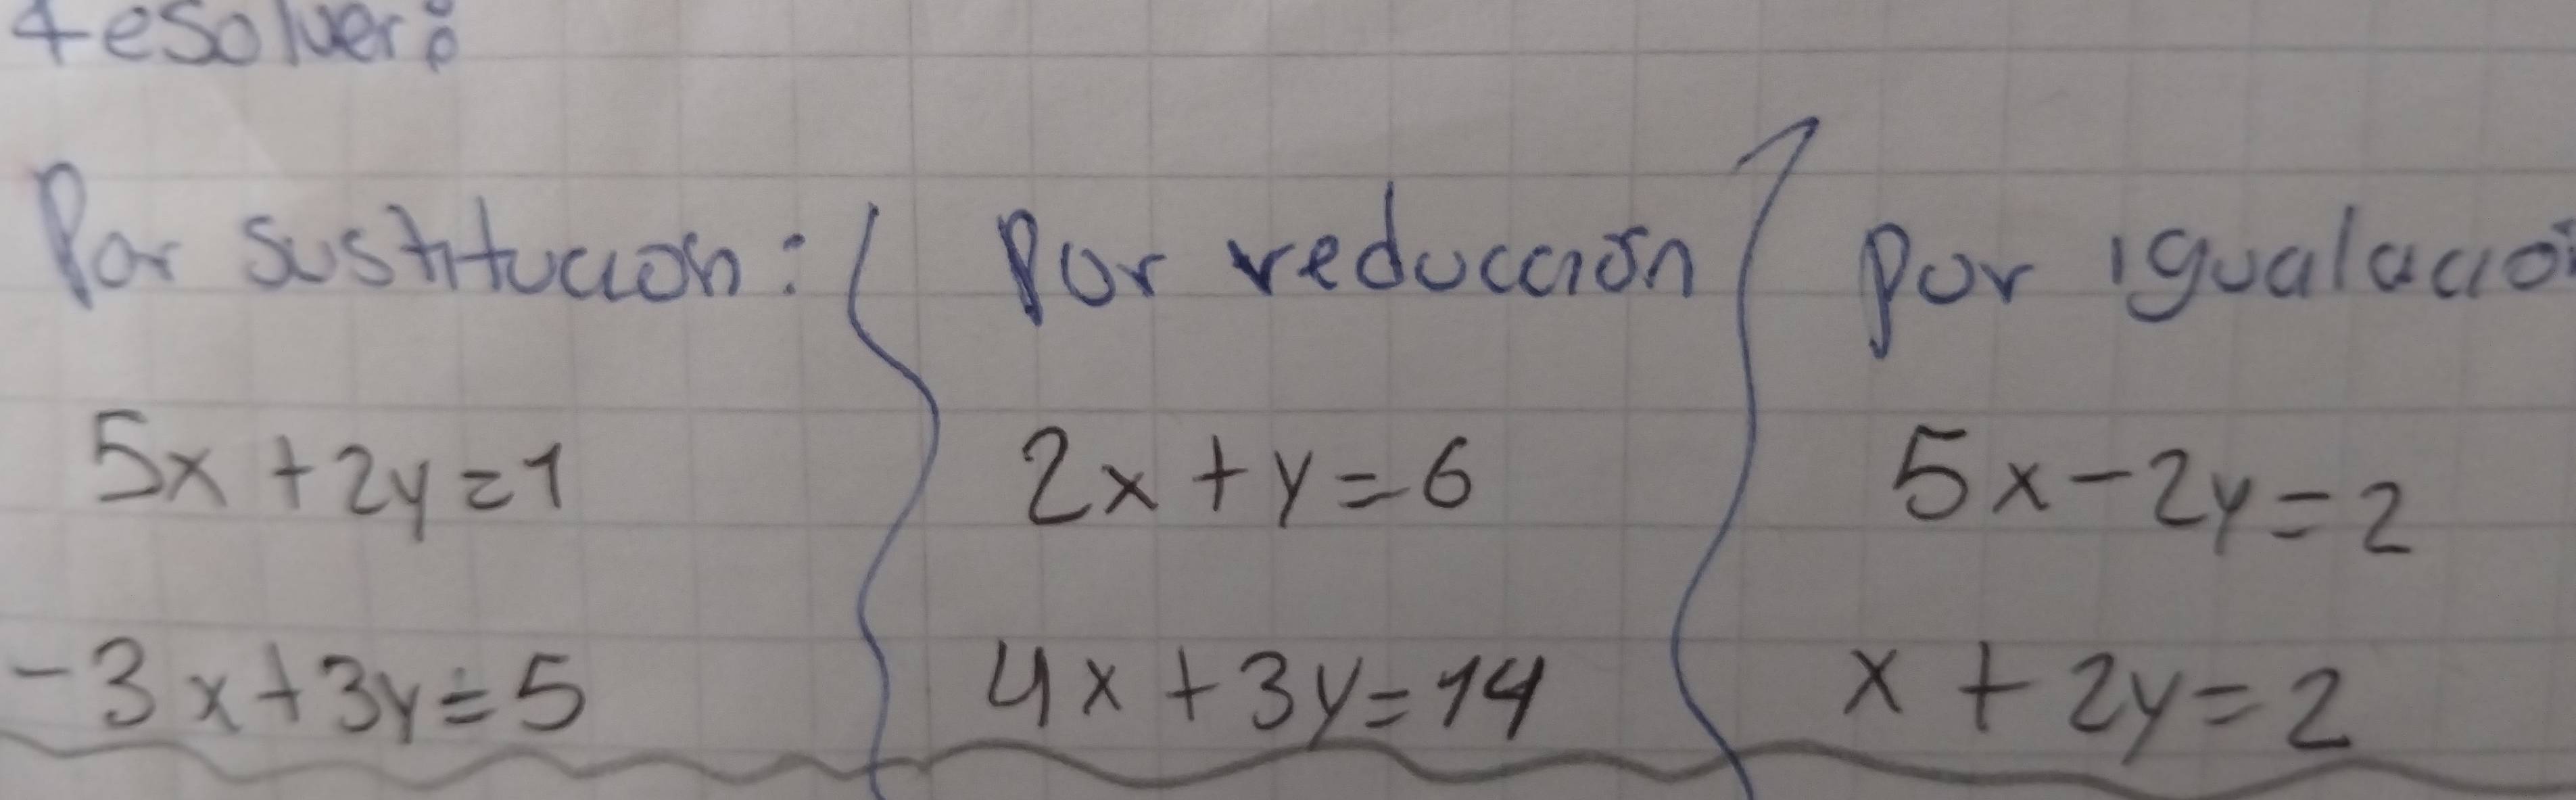 resolver:
Por sustitución:
5x+2y=1
-3x+3y=5
Por reducción
2x+y=6
4x+3y=14
Por igualació
5x-2y=2
x+2y=2